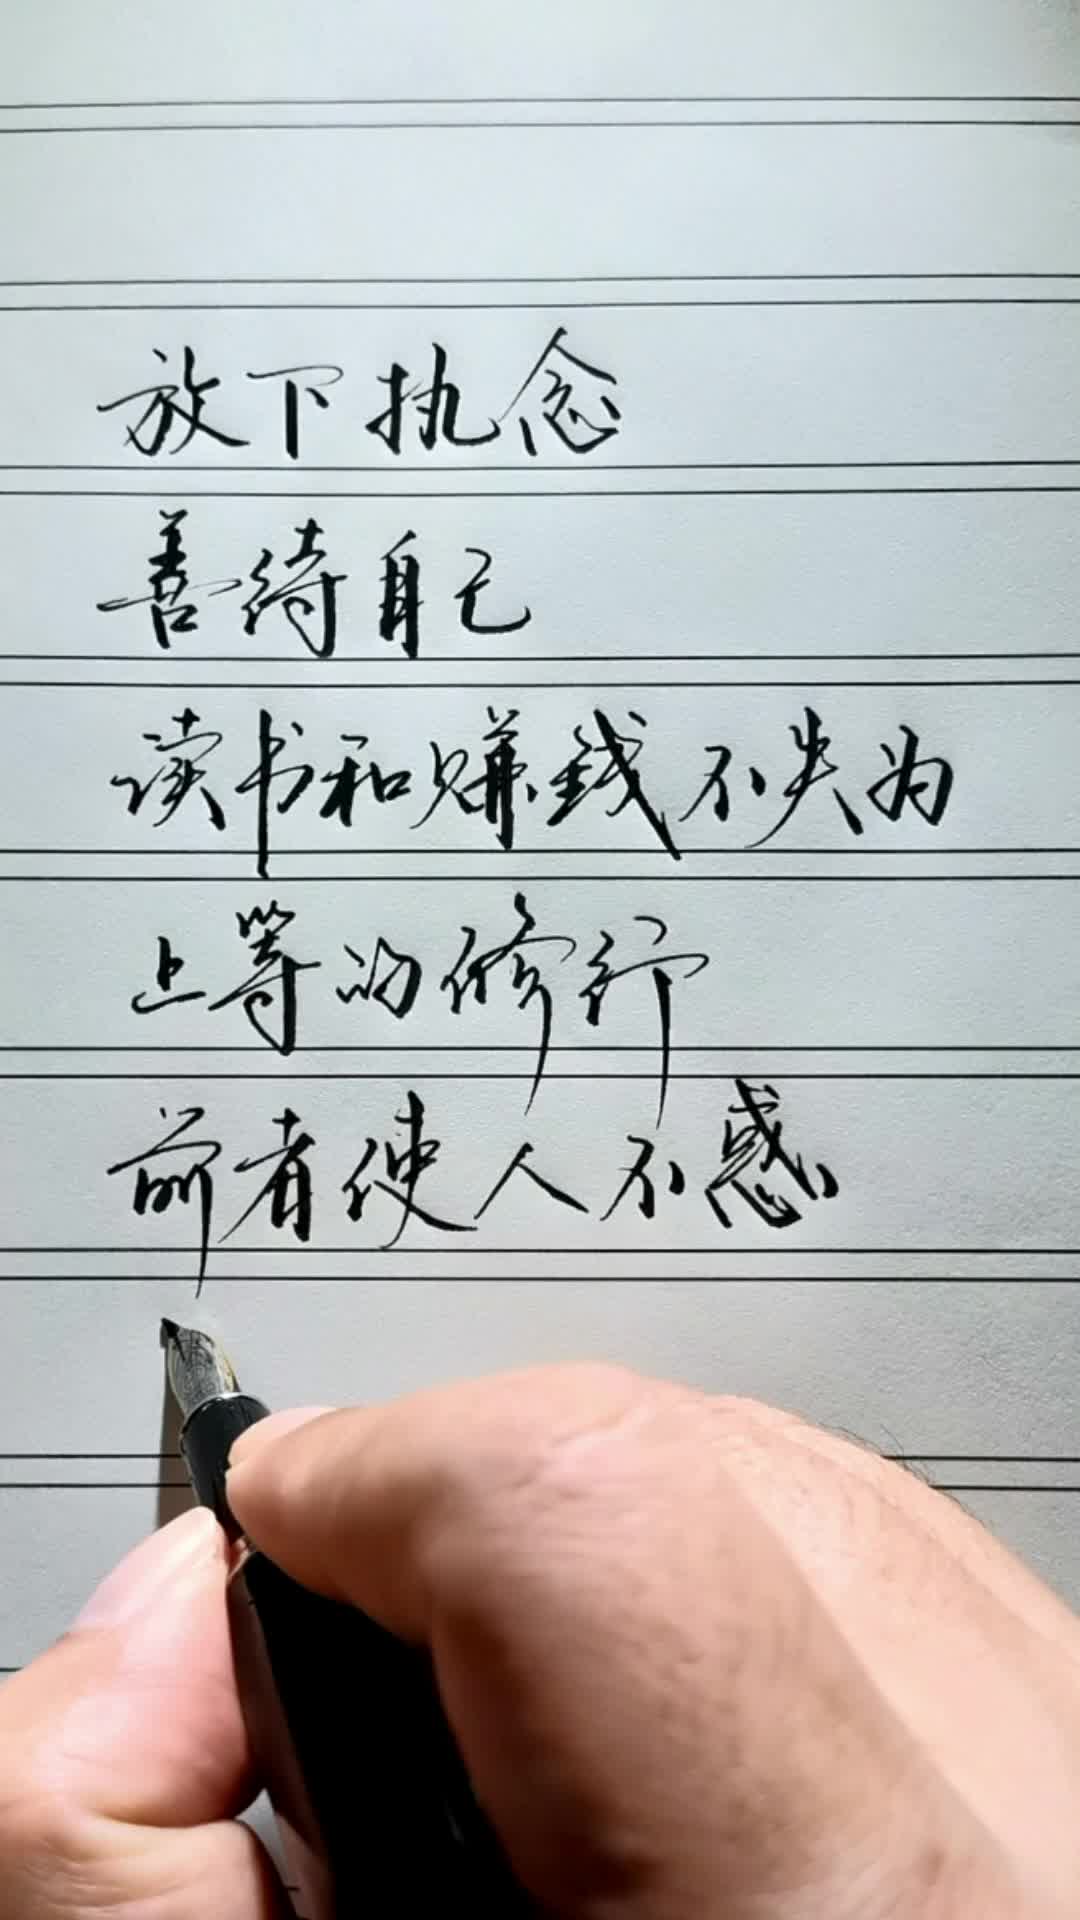 放下执念
善待自己
读书和赚钱不失为
上等的修行
前者使人不惑